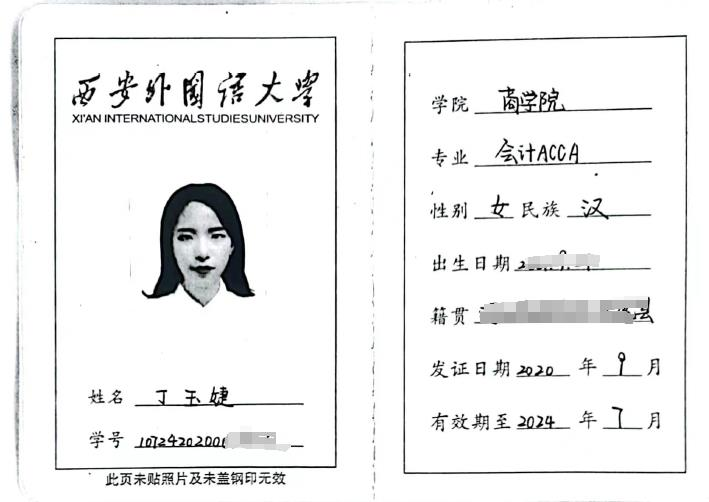 西安外国语大学
XI'AN INTERNATIONALSTUDIESUNIVERSITY
姓名 丁玉婕
学号 107242020001
此页未贴照片及未盖钢印无效
学院 商学院
专业 会计ACCA
性别 女 民族 汉
出生日期
籍贯
发证日期 2020 年 9 月
有效期至 2024 年 7 月